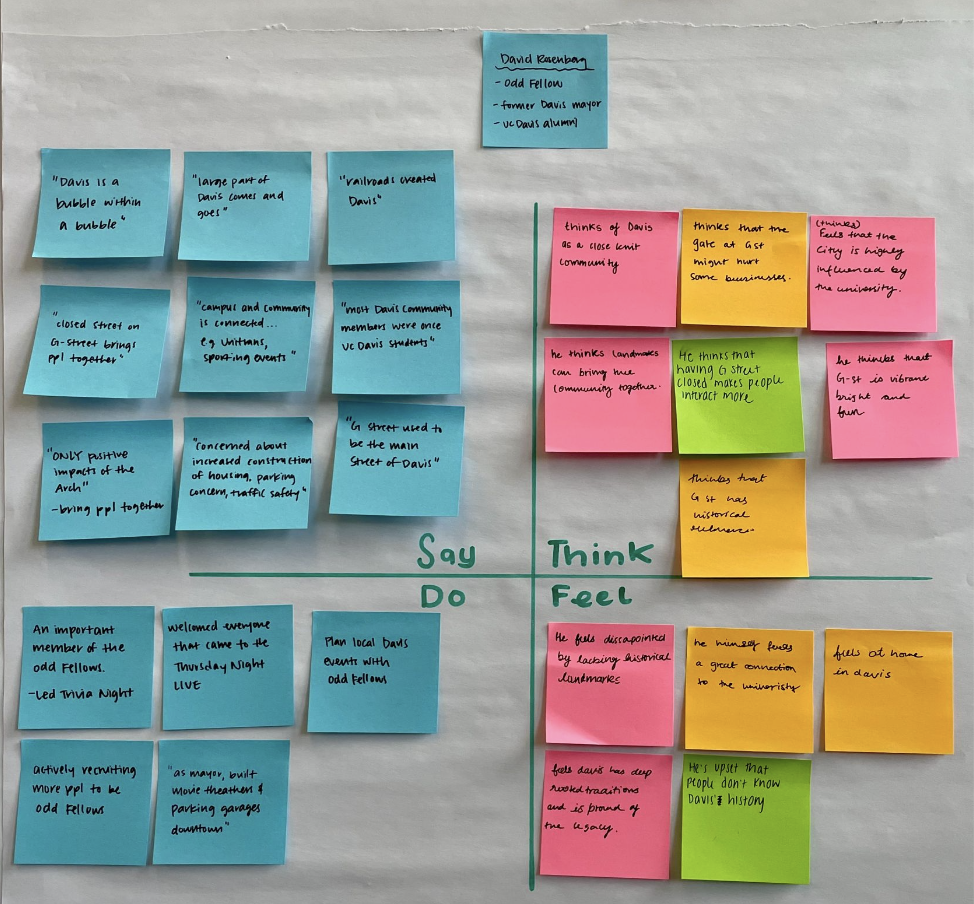 David Rosenberg
- Odd Fellow
- former Davis mayor
- UC Davis alumni
"Davis is a
bubble within
a bubble"
"large part of
Davis comes and
goes"
"railroads created
Davis"
"closed street on
G-street brings
ppl together"
"campus and community
is connected...
e.g. Unitrans,
sporting events"
"most Davis community
members were once
UC Davis students"
"ONLY positive
impacts of the
Arch"
- bring ppl together
"concerned about
increased construction
of housing, parking
concern, traffic safety"
"G street used to
be the main
street of Davis"
Say
thinks of Davis
as a close knit
community
thinks that the
gate at G st
might hurt
some businesses.
(thinks)
Feels that the
City is highly
influenced by
the university.
he thinks landmarks
can bring the
community together.
He thinks that
having G street
closed makes people
interact more
he thinks that
G-st is vibrant
bright and
fun
thinks that
G st has
historical
Think
Do
An important
member of the
odd Fellows.
- Led Trivia Night
welcomed everyone
that came to the
Thursday Night
LIVE
Plan local Davis
events with
odd Fellows
actively recruiting
more ppl to be
odd Fellows
"as mayor, built
movie theathers &
parking garages
downtown"
Feel
He feels dissapointed
by lacking historical
landmarks
he himself feels
a great connection
to the univeristy
feels at home
in davis
feels davis has deep
rooted traditions
and is proud of
the legacy.
He's upset that
people don't know
Davis' history